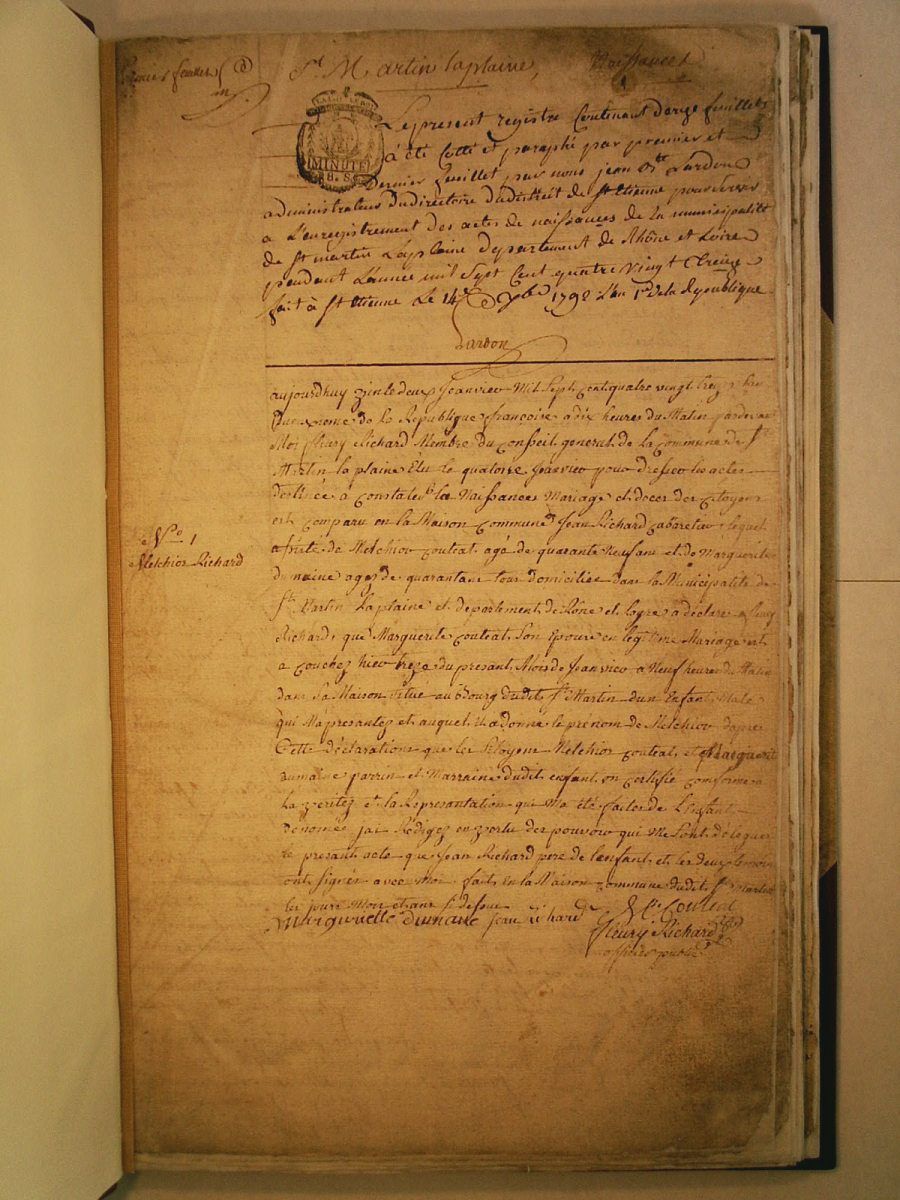 premier feuillet
St Martin laplaine, Naissances
MINUTE
8. S.
Le present registre Contenant donze feuillets
à été Cotté et paraphé par premier et
Dernier feuillet par nous jean Bte Lardon
administrateur du directoire du district de St Etienne pour servir
a L'enregistrement des actes de naissances de La municipalité
de St martin Laplaine departement de Rhône et Loire
pendant L'année mil Sept Cent quatre Vingt Treize
fait à St Etienne Le 14e Xbre 1792 L'an 1er de la Republique
Lardon
aujourdhuy vintedeux Jeanvier Mil Sept Cent quatre vingt treze Lan
deuxieome de la Republique françoise a dix heures du Matin pardevan
Moi fleury Richard Membre du Conseil general de La Commune de St
Martin la plaine Elu le quatorze Jeanvier pour dresser les actes
destinée à Constater la Naissances Mariage et deces des Citoyens
est Comparu en La Maison Commune Jean Richard Cabaretier lequel
assisté de Melchior Couteat agé de quarante Neuf ans et de Marguerite
dumaine agez de quarantan tous domiciliée dans la Municipalité de
St Martin Laplaine et departement de Rône et Logre a déclaré a fleury
Richard, que Marguerite Couteat Son épouse en legitime Mariage est
a Couchez hier treze du present Mois de Jeanvier a Neuf heures du Matin
dans Sa Maison situe au Bourg dudit St Martin d'un Enfant Male
qui Ma presantez et auquel il a donné le prénom de Melchior dapres
Cette déclarations que les Citoyens Melchior Couteat, et Marguerite
Dumaine parrin et Marraine dudit enfant on Certifié Comforme a
La Veritez et la Representation qui Ma été faites de L'enfant
denomée jai Rédigez en Vertu des pouvoir qui Me Sont delegues
le presant acte que Jean Richard pere de l'enfant et les deux temoin
ont signés avec Moi fait en la Maison Commune dudit St Martin
les jours Mois et ans si desue
No 1
Melchior Richard
Margueritte dumaine Jean richard Mr Couteat
fleury Richard
officier public